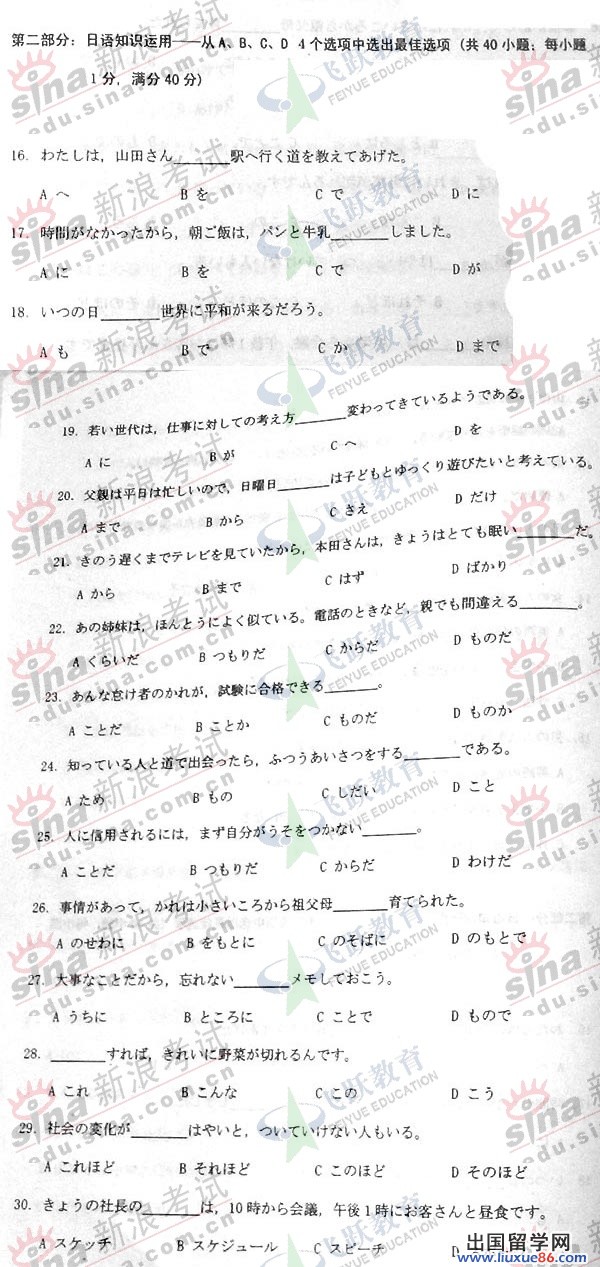 第二部分：日语知识运用——从A、B、C、D 4个选项中选出最佳选项（共40小题；每小题
1分，满分40分）
16. わたしは，山田さん______駅へ行く道を教えてあげた。
A へ B を C で D に
17. 時間がなかったから，朝ご飯は，パンと牛乳______しました。
A に B を C で D が
18. いつの日______世界に平和が来るだろう。
A も B で C か D まで
19. 若い世代は，仕事に対しての考え方______変わってきているようである。
A に B が C へ D を
20. 父親は平日は忙しいので，日曜日______は子どもとゆっくり遊びたいと考えている。
A まで B から C さえ D だけ
21. きのう遅くまでテレビを見ていたから，本田さんは，きょうはとても眠い______だ。
A から B まで C はず D ばかり
22. あの姉妹は，ほんとうによく似ている。電話のときなど，親でも間違える______。
A くらいだ B つもりだ C ためだ D ものだ
23. あんな怠け者のかれが，試験に合格できる______。
A ことだ B ことか C ものだ D ものか
24. 知っている人と道で出会ったら，ふつうあいさつをする______である。
A ため B もの C しだい D こと
25. 人に信用されるには，まず自分がうそをつかない______。
A ことだ B つもりだ C からだ D わけだ
26. 事情があって，かれは小さいころから祖父母______育てられた。
A のせわに B をもとに C のそばに D のもとで
27. 大事なことだから，忘れない______メモしておこう。
A うちに B ところに C ことで D もので
28. ______すれば，きれいに野菜が切れるんです。
A これ B こんな C この D こう
29. 社会の変化が______はやいと，ついていけない人もいる。
A これほど B それほど C このほど D そのほど
30. きょうの社長の______は，10時から会議，午後1時にお客さんと昼食です。
A スケッチ B スケジュール C スピーチ D
新浪考试
sina
edu.sina.com.cn
飞跃教育
FEIYUE EDUCATION
出国留学网
www.liuxue86.com